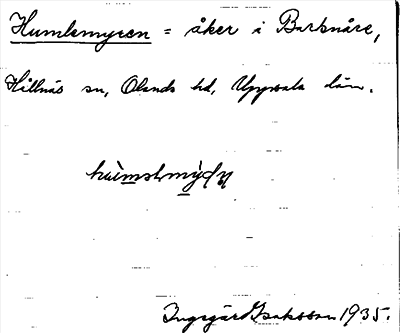 Humlemyren = åker i Barknåre,
Hållnäs sn, Olands hd, Uppsala län.
Ingegärd Isaksson 1935.